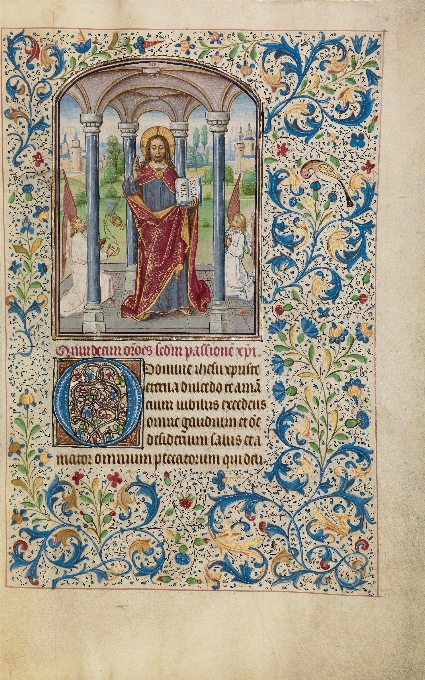 Quindecim orões scdm passione xpi.
O Domine ihesu xpriste
eterna dulcedo et amã
cium iubilus excedens
omne gaudium et oẽ
desiderium salus et a
mator omnium peccatorum qui deli